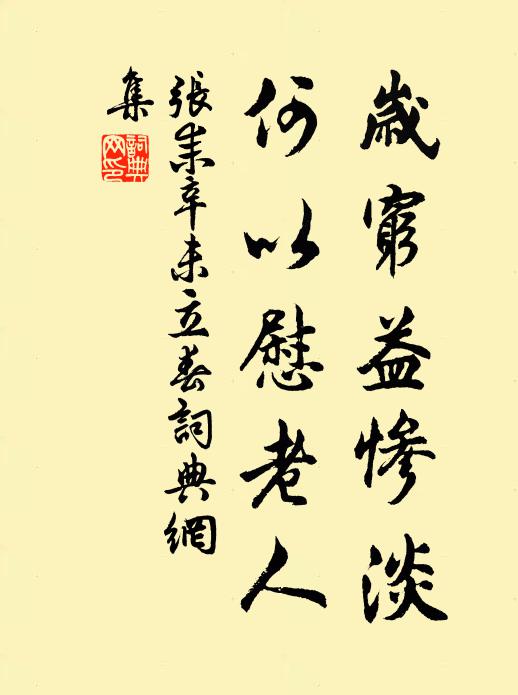 歲窮益慘淡
何以慰老人
張耒辛未立春詞典網
集
詞典網印